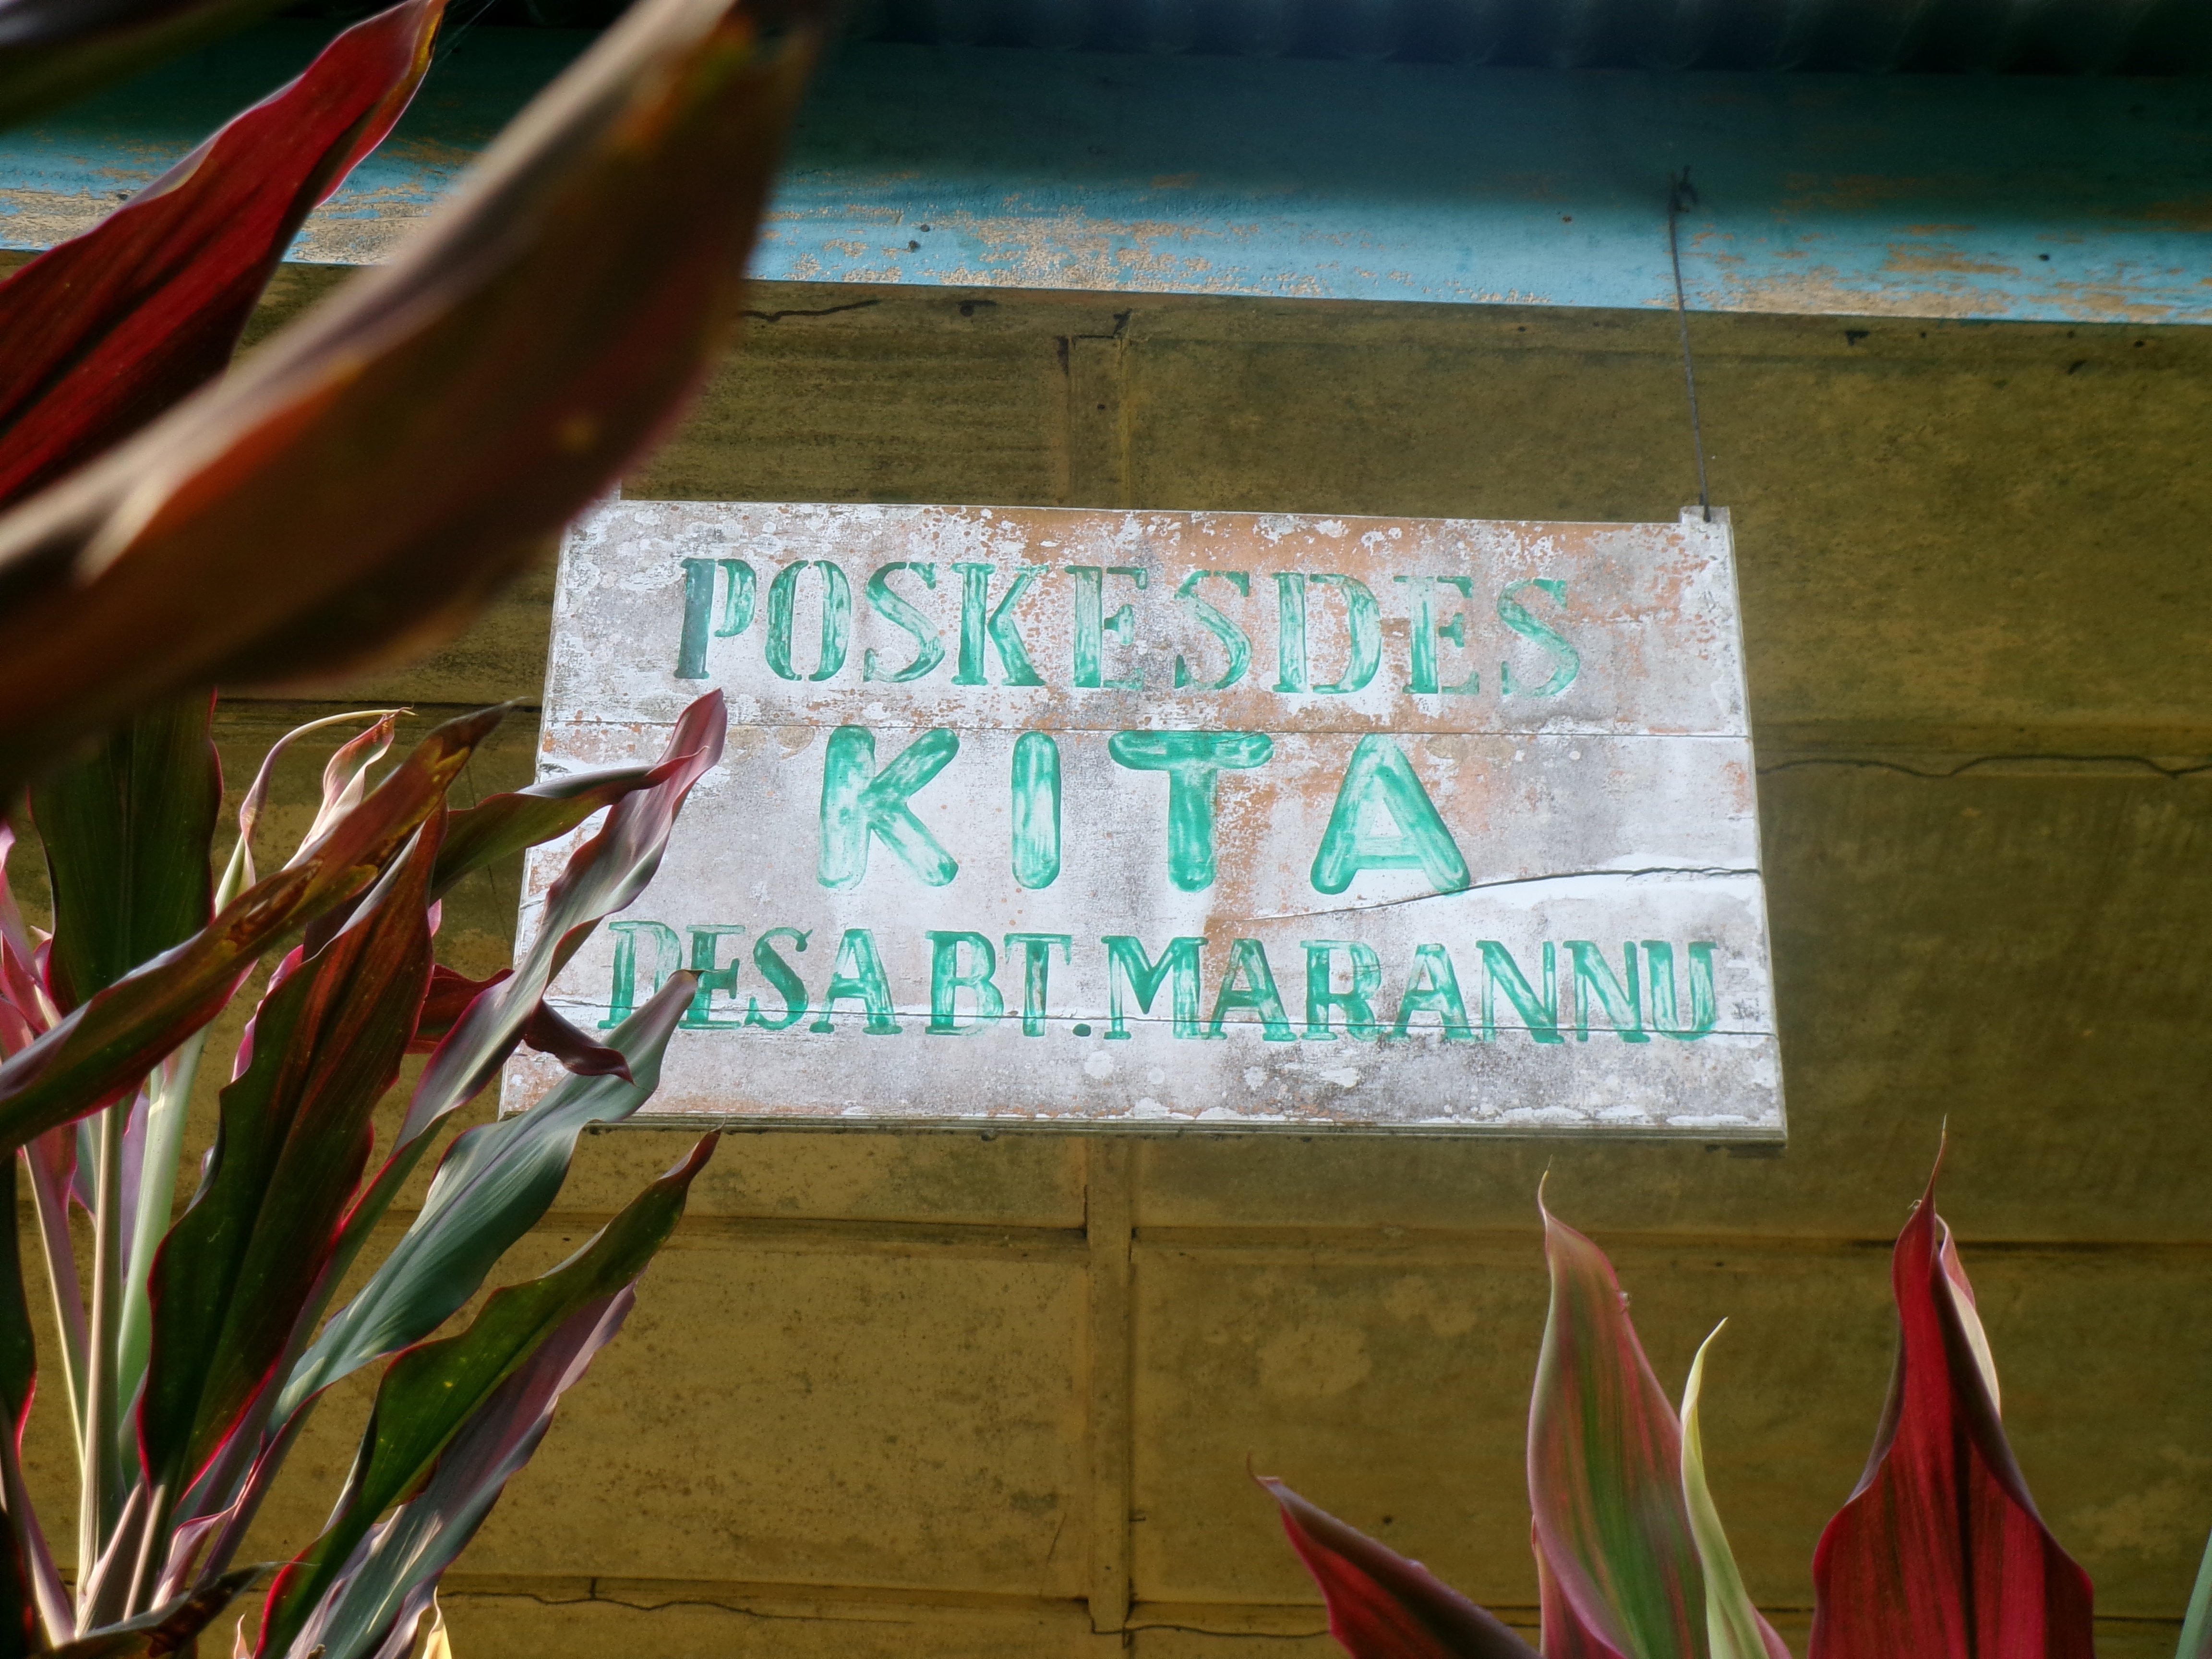 POSKESDES
KITA
DESA BT.MARANNU